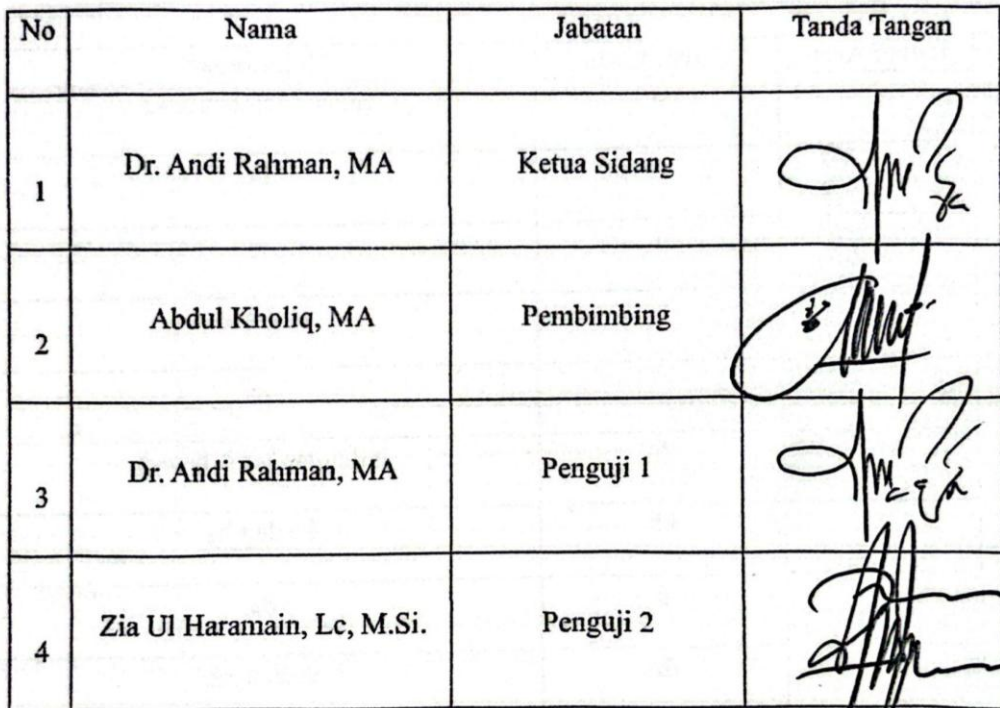 No Nama Jabatan Tanda Tangan
1 Dr. Andi Rahman, MA Ketua Sidang
2 Abdul Kholiq, MA Pembimbing
3 Dr. Andi Rahman, MA Penguji 1
4 Zia Ul Haramain, Lc, M.Si. Penguji 2